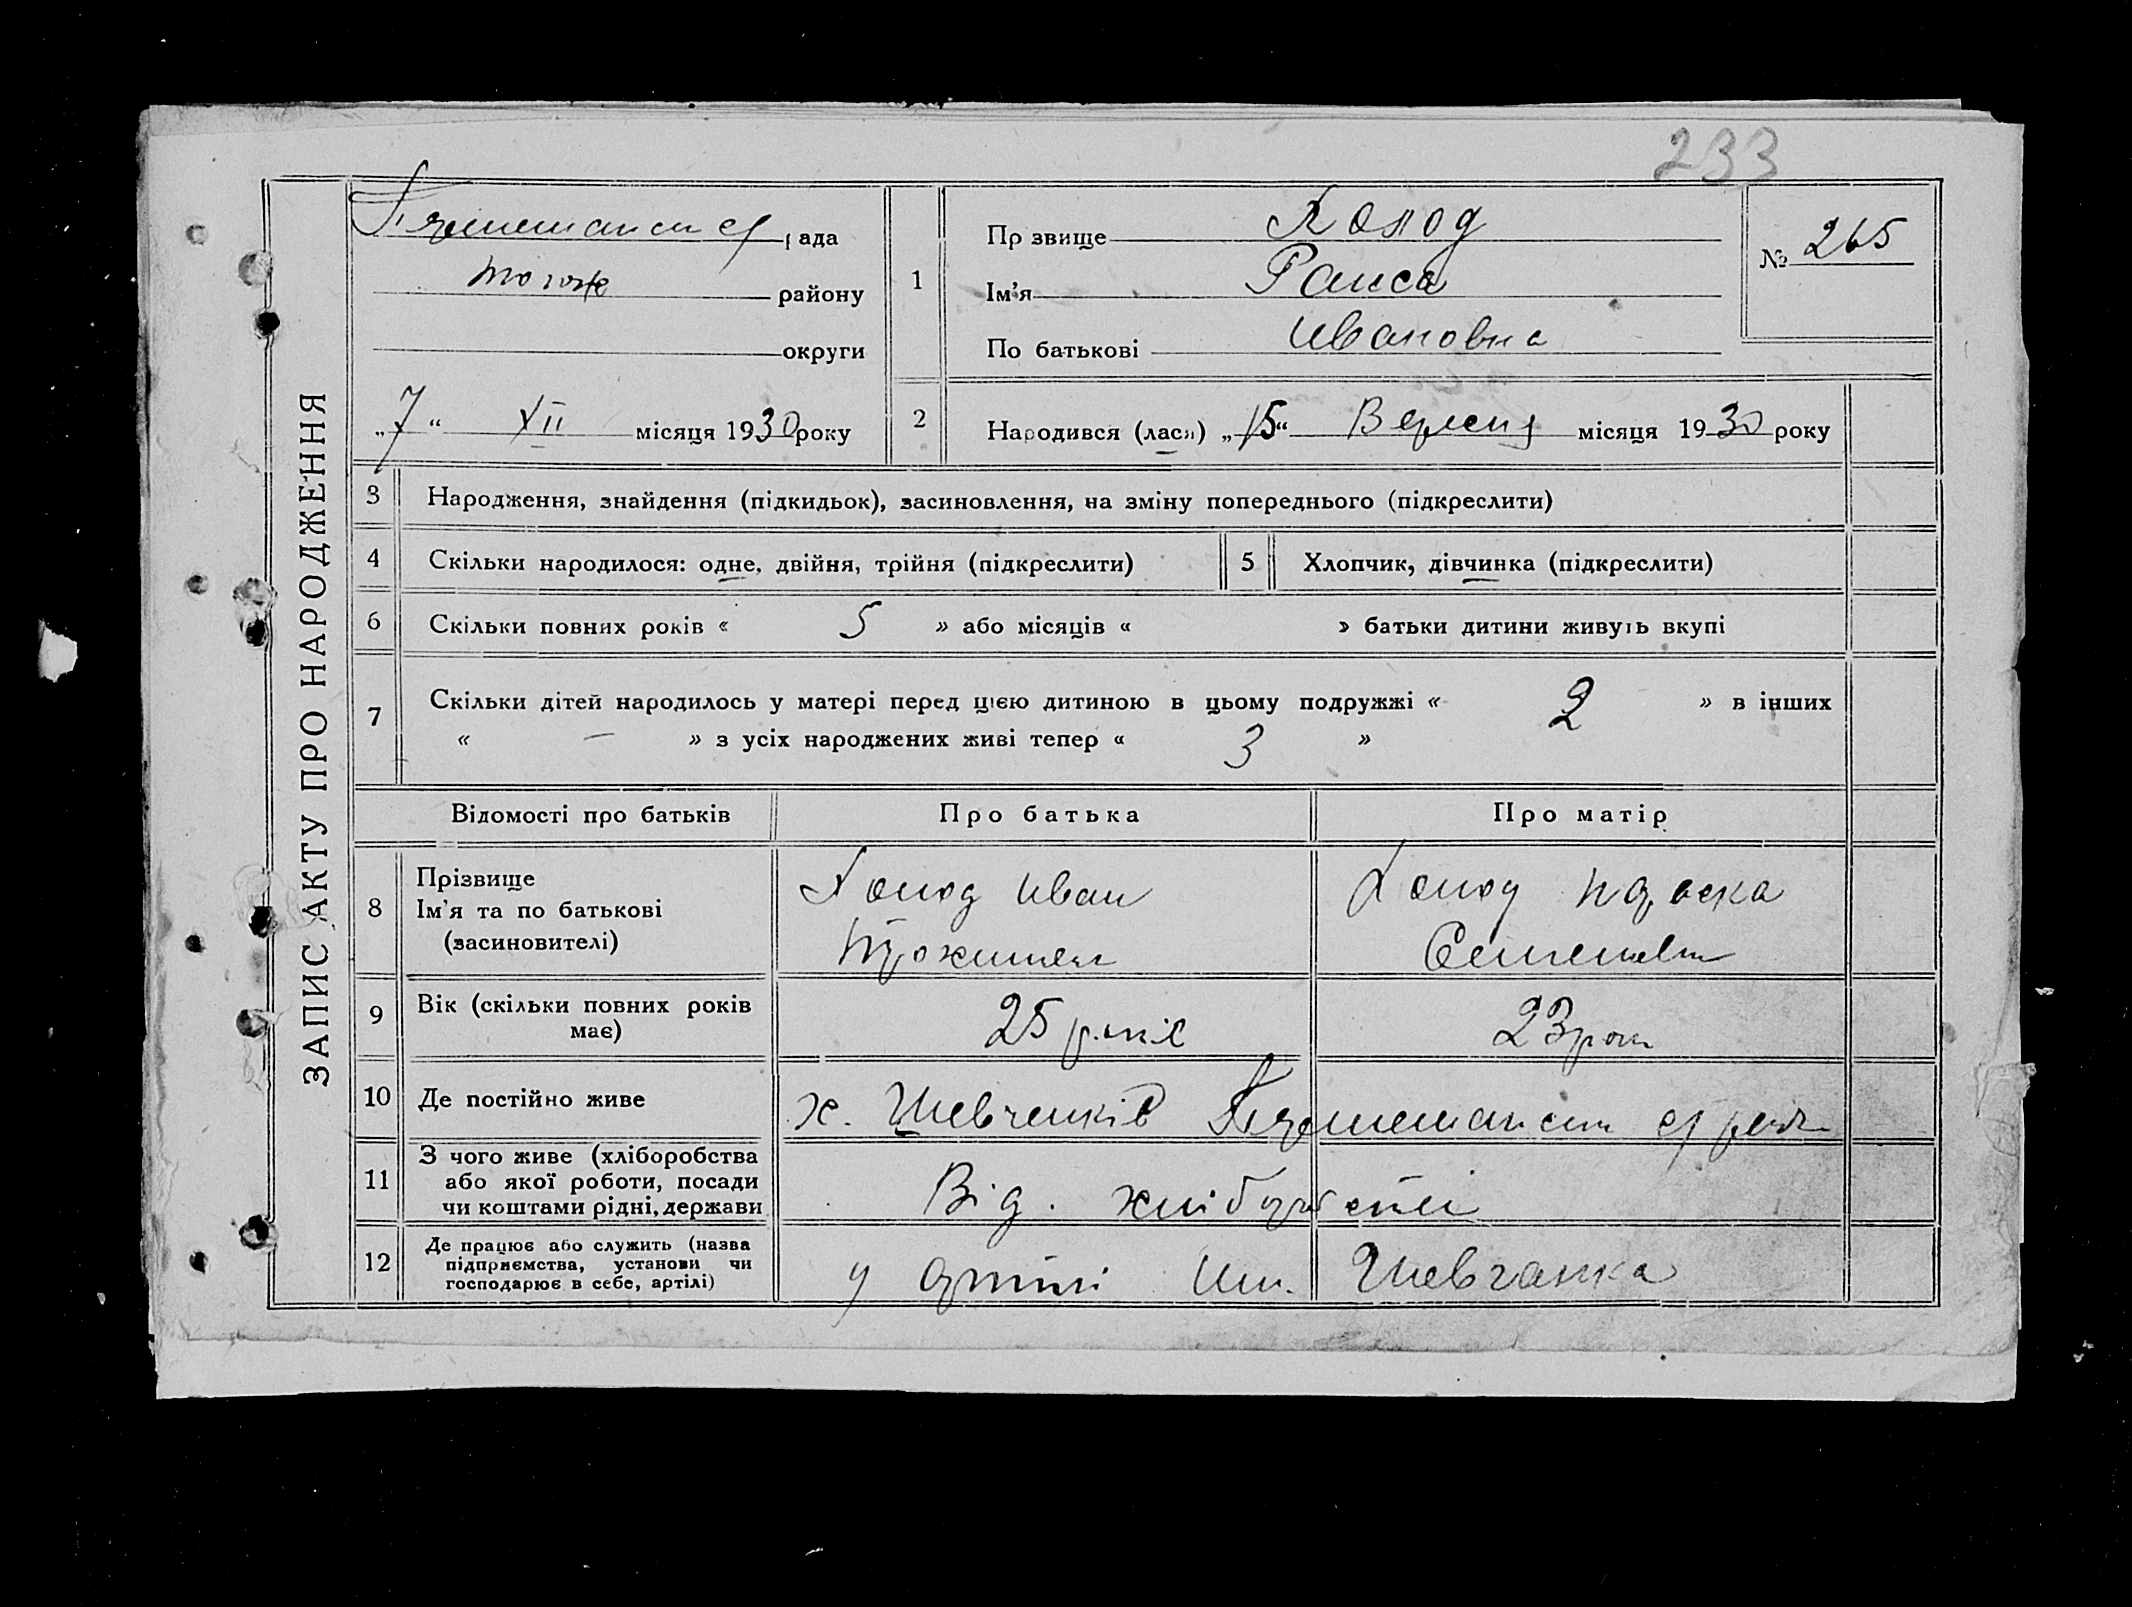 233
ЗАПИС АКТУ ПРО НАРОДЖЕННЯ
рада
району
округи
„7“ XII місяця 1930 року
1
Прізвище
Ім’я Раиса
По батькові Ивановна
№ 265
2 Народився (лася) „15“ Вересня місяця 1930 року
3 Народження, знайдення (підкидьок), засиновлення, на зміну попереднього (підкреслити)
4 Скільки народилося: одне, двійня, трійня (підкреслити)
5 Хлопчик, дівчинка (підкреслити)
6 Скільки повних років « 5 » або місяців « » батьки дитини живуть вкупі
7 Скільки дітей народилось у матері перед цією дитиною в цьому подружжі « 2 » в інших
« — » з усіх народжених живі тепер « 3 »
Відомості про батьків Про батька Про матір
8 Прізвище
Ім’я та по батькові
(засиновителі)
Иван
9 Вік (скільки повних років
має)
25 років 23 рок
10 Де постійно живе х. Шевченків
11 З чого живе (хліборобства
або якої роботи, посади
чи коштами рідні, держави
Від.
12 Де працює або служить (назва
підприємства, установи чи
господарює в себе, артілі)
у артілі им. Шевчанка